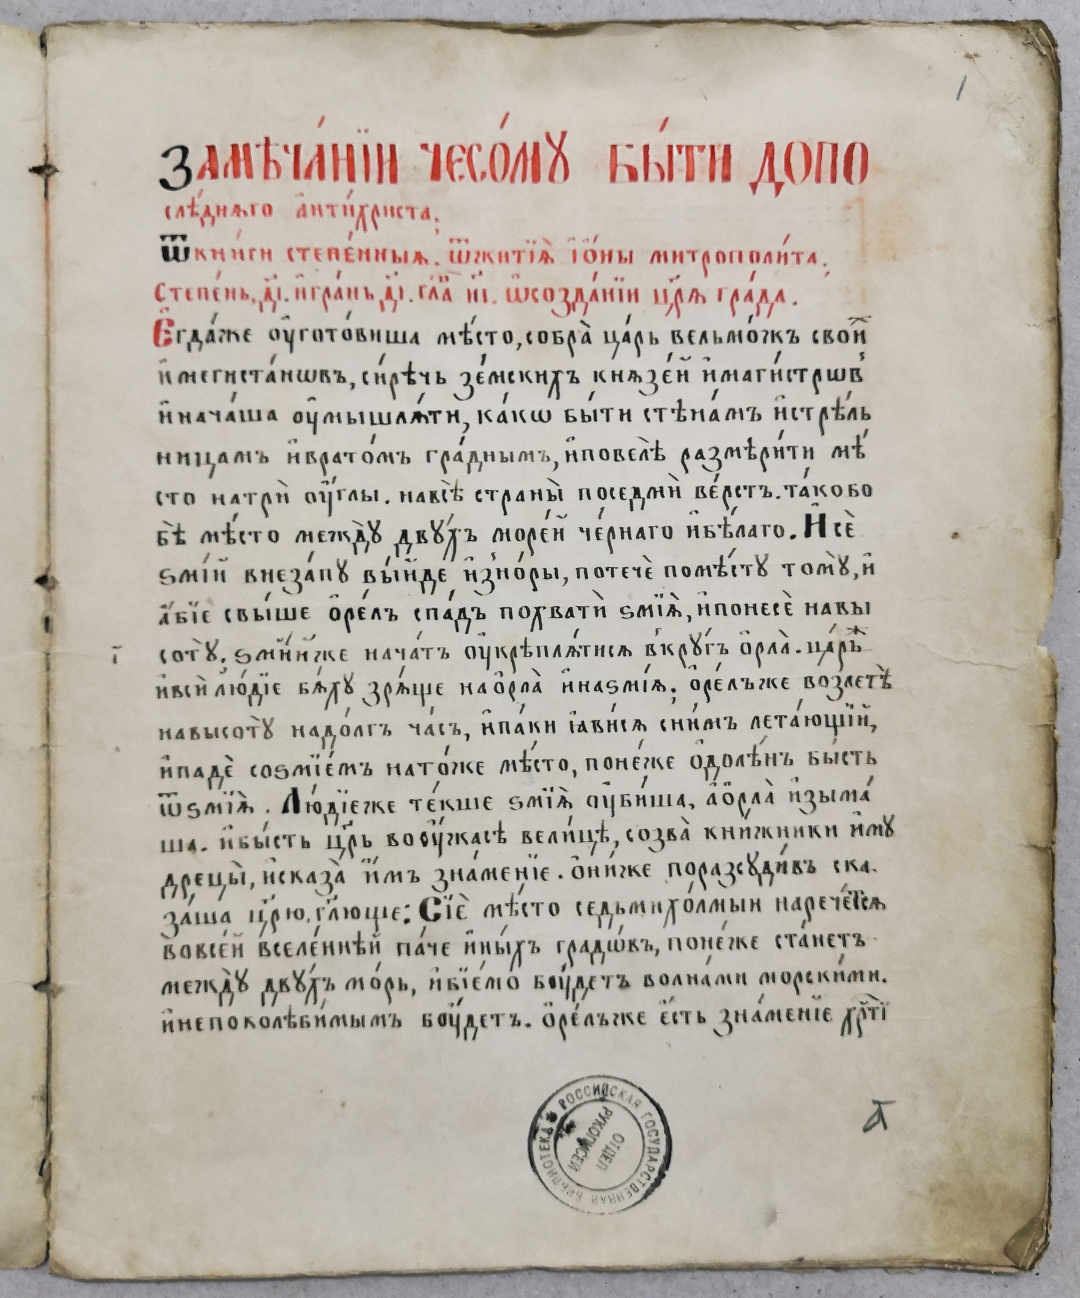 1
Замѣча́нїи чесо́мꙋ бы́ти допо
слѣ́днѧго а҆нти́христа.
Ѿкни́ги степе́нныѧ. ѿжитїѧ̀ і҆ѡ́ны митрополи́та.
Степе́нь, д҃і. и҆гра́нь, д҃і. гл҃а и҃і. ѡ҆созда́нїи цр҃ѧ гра́да.
Е҆гда́же ᲂу҆гото́виша мѣ́сто, собра̀ ца́рь вельмо́жъ свои҆́
и҆мегиста́нѡвъ, си́рѣчь зе́мскихъ кнѧзе́й и҆маги́стрѡв
и҆нача́ша ᲂу҆мышлѧ́ти, ка́кѡ бы́ти стѣна́мъ и҆стрѣ́ль
ницамъ и҆врато́мъ гра́днымъ, и҆повелѣ̀ размѣ́рити мѣ́
сто натрѝ ᲂу҆́глы. навсѣ̀ страны̀ поседмѝ ве́рстъ. та́кобо
бѣ̀ мѣ́сто междꙋ̀ двꙋ́хъ море́й че́рнаго и҆бѣ́лаго. И҆ сѐ
ѕмі́й внеза́пꙋ вы́йде и҆знѡ́ры, потечѐ помѣ́стꙋ томꙋ̀, и҆
а҆́бїе свы́ше ѻ҆ре́лъ спа́дъ похватѝ ѕмїѧ̀, и҆понесѐ навы
сотꙋ̀. ѕмі́йже нача́тъ ᲂу҆крѣплѧ́тисѧ вкрꙋ́гъ ѻ҆рла̀. ца́рь
и҆всѝ лю́дїе бѧ́хꙋ зрѧ́ще наѻ҆рла̀ и҆наѕмі́ѧ. ѻ҆ре́лъже возлетѣ̀
навысотꙋ̀ надо́лгъ ча́съ, и҆па́ки ꙗ҆ви́сѧ сни́мъ лета́ющїй,
и҆падѐ соѕмїе́мъ нато́же мѣ́сто, поне́же ѡ҆долѣ́нъ бы́сть
ѿѕмїѧ̀. Лю́дїеже те́кше ѕмїѧ̀ ᲂу҆би́ша, а҆ѻ҆рла̀ и҆зыма́
ша. и҆бы́сть цр҃ь воᲂу҆́жасѣ вели́цѣ, созва̀ кни́жники и҆мꙋ
дрецы̀, и҆сказа̀ и҆̀мъ зна́менїе. ѻ҆ни́же поразсꙋди́въ ска
за́ша цр҃ю, гл҃юще: Сїѐ мѣ́сто седьмихо́лмыи нарече́тсѧ
вовсе́й вселе́ннѣй па́че и҆ны́хъ градѡ́въ, поне́же ста́нетъ
междꙋ̀ двꙋ́хъ мо́рь, и҆бїе́мо бꙋ́детъ волна́ми морски́ми.
и҆непоколѣби́мымъ бꙋ́детъ. ѻ҆ре́лъже є҆́сть зна́менїе хр҃тї
РОССИЙСКАЯ ГОСУДАРСТВЕННАЯ БИБЛИОТЕКА
ОТДЕЛ
РУКОПИСЕЙ